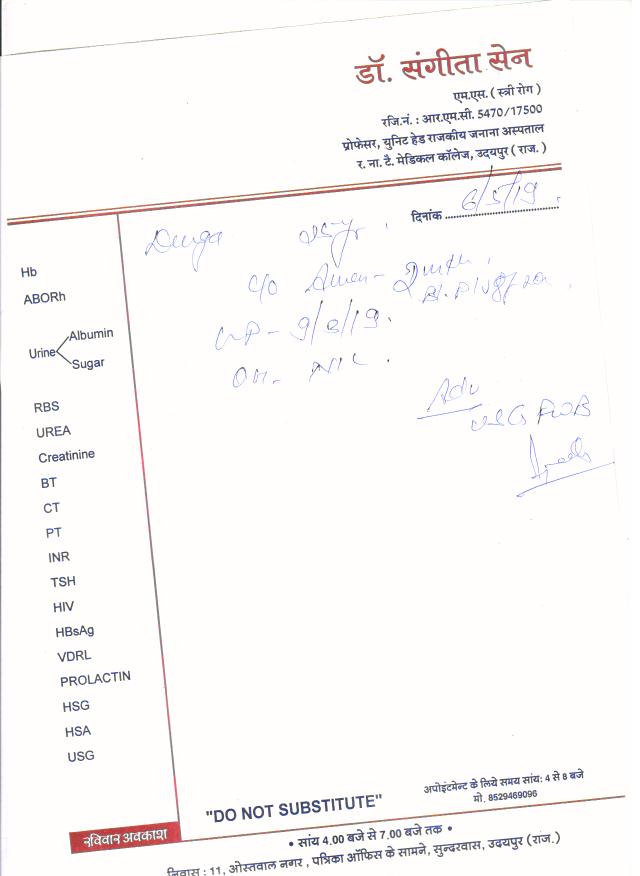 डॉ. संगीता सेन
एम.एस. ( स्त्री रोग )
रजि.नं. : आर.एम.सी. 5470/17500
प्रोफेसर, युनिट हेड राजकीय जनाना अस्पताल
र. ना. टै. मेडिकल कॉलेज, उदयपुर ( राज. )
दिनांक 6/5/19
Durga
c/o
- 9/3/19.
OH - NIL.
Adv
USG FWB
Hb
ABORh
Urine Albumin
Sugar
RBS
UREA
Creatinine
BT
CT
PT
INR
TSH
HIV
HBsAg
VDRL
PROLACTIN
HSG
HSA
USG
"DO NOT SUBSTITUTE"
अपोइंटमेन्ट के लिये समय सांय: 4 से 8 बजे
मो. 8529469096
रविवार अवकाश
• सांय 4.00 बजे से 7.00 बजे तक •
निवास : 11, ओस्तवाल नगर , पत्रिका ऑफिस के सामने, सुन्दरवास, उदयपुर (राज.)